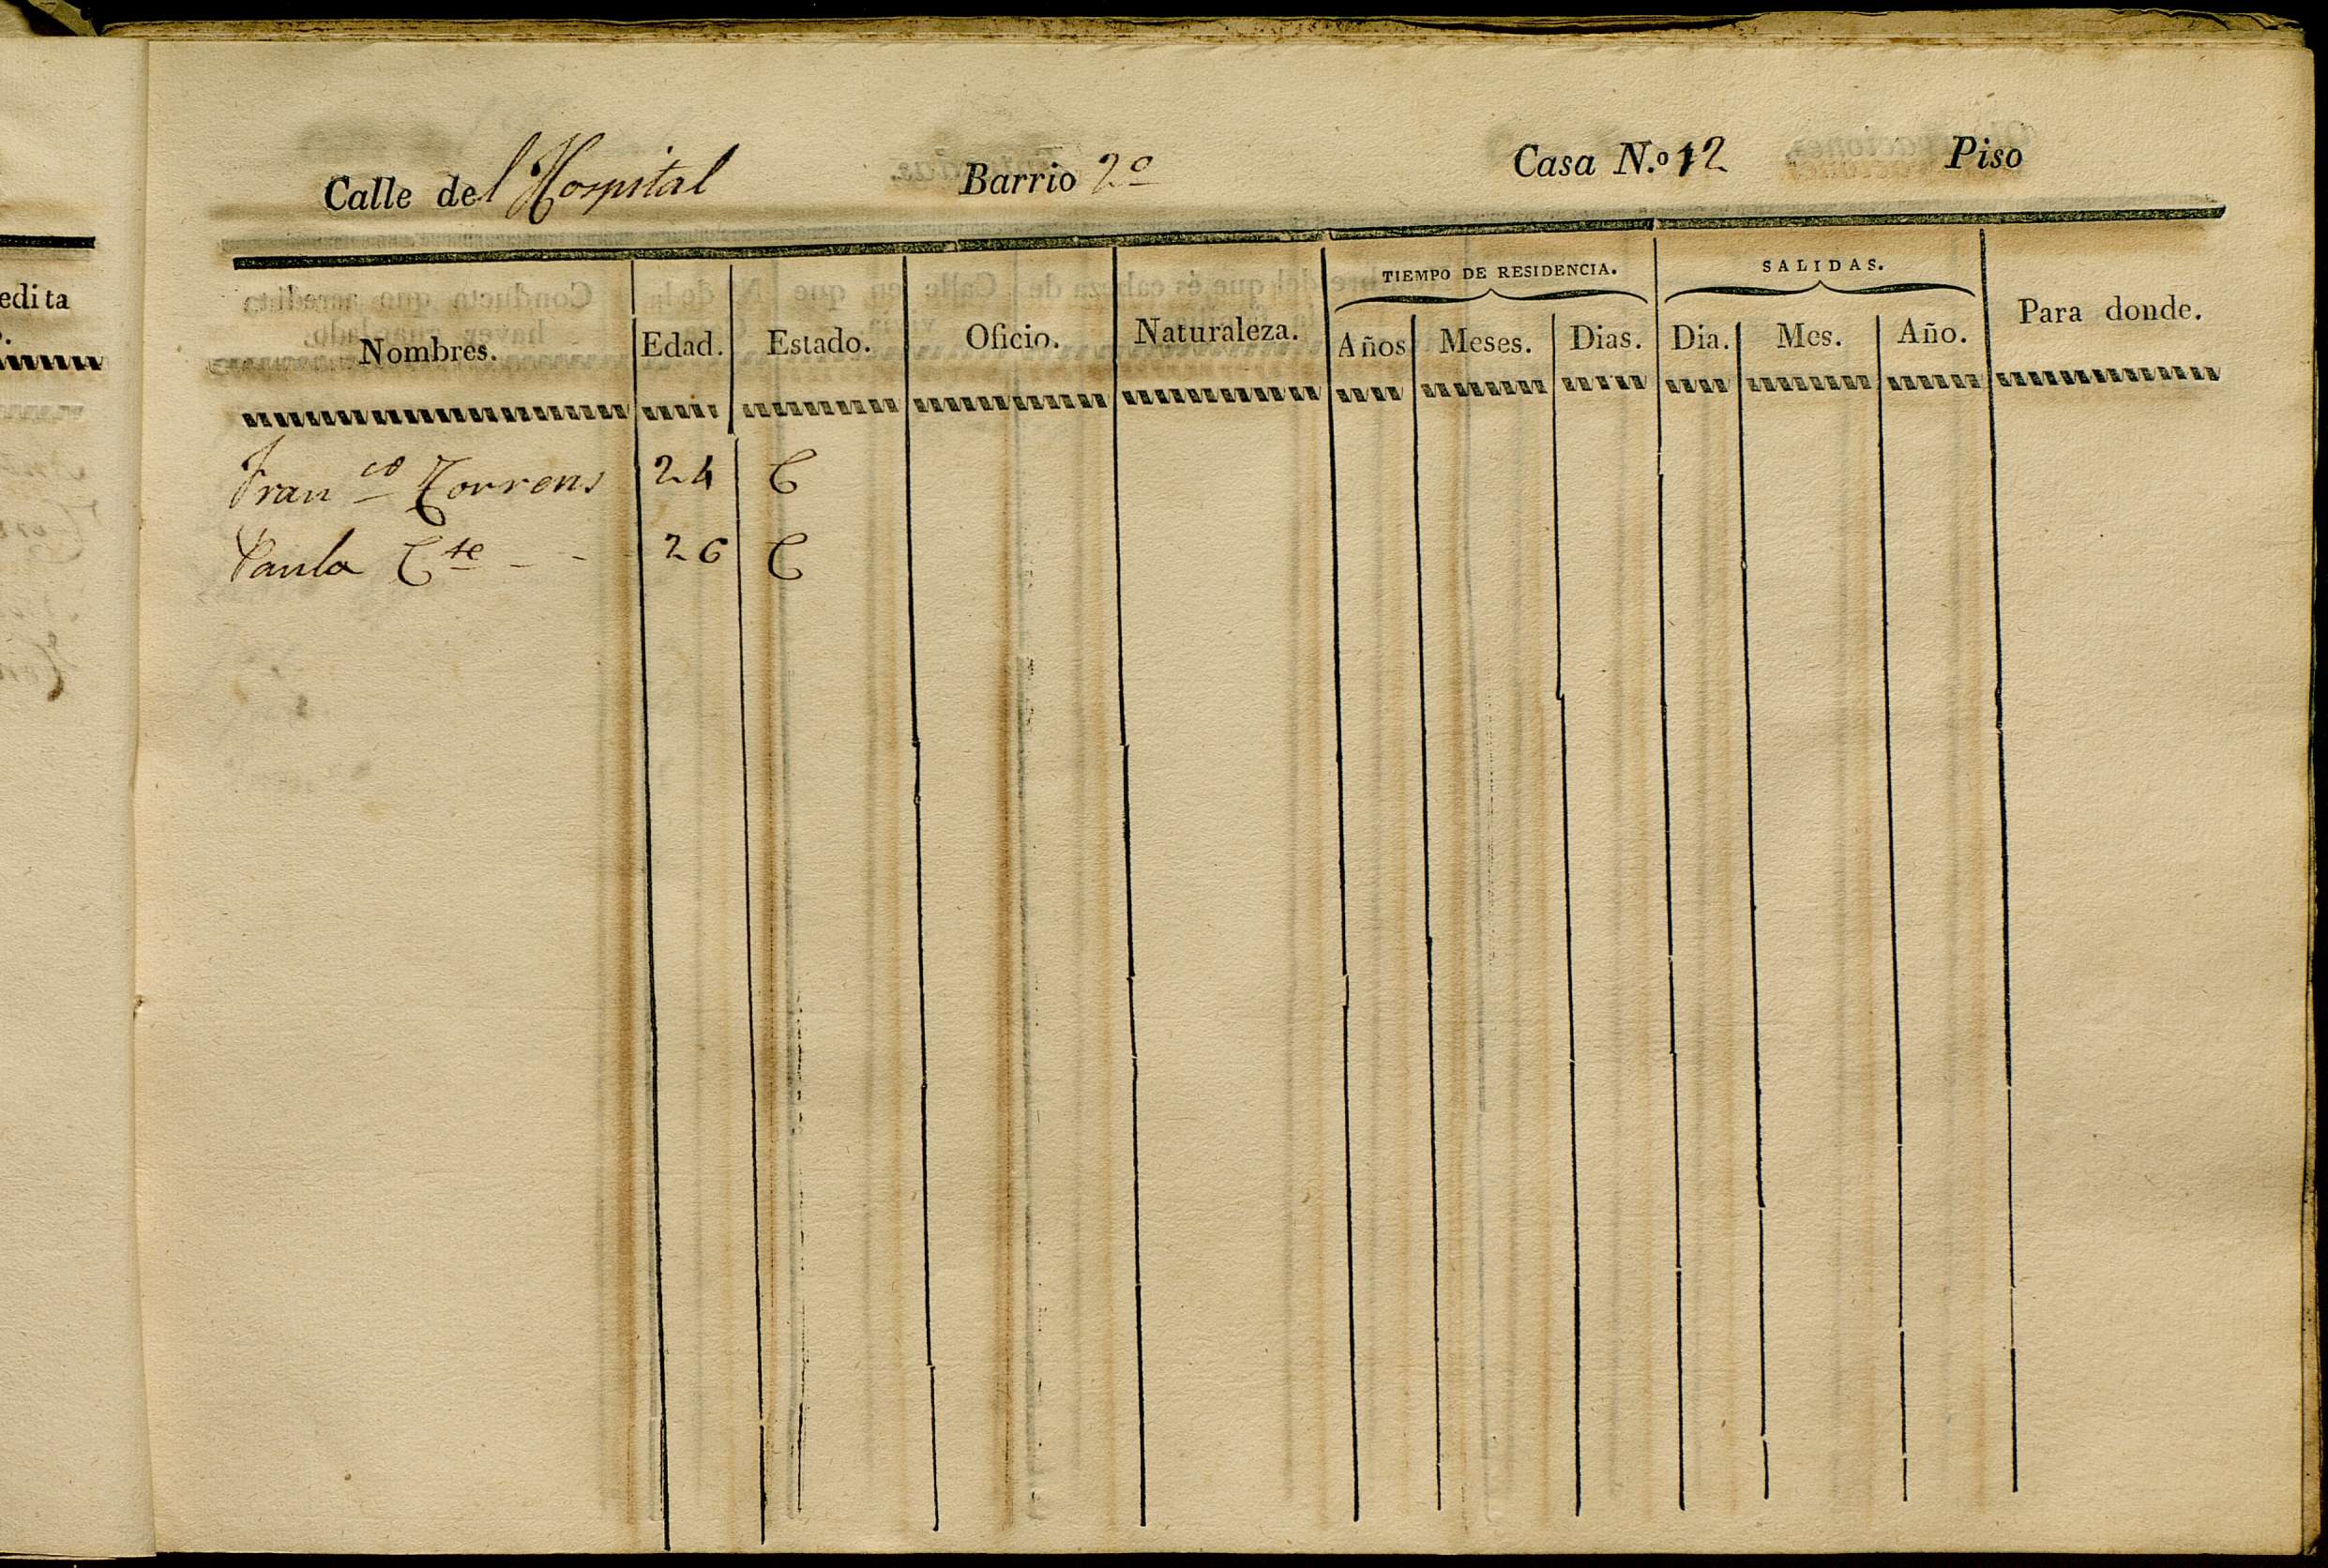 edita
Calle del Hospital Barrio 2º Casa N.º 12 Piso
TIEMPO DE RESIDENCIA. SALIDAS.
Nombres. Edad. Estado. Oficio. Naturaleza. Años Meses. Dias. Dia. Mes. Año. Para donde.
Franco Torrens 24 C
Paula Cte - - 26 C